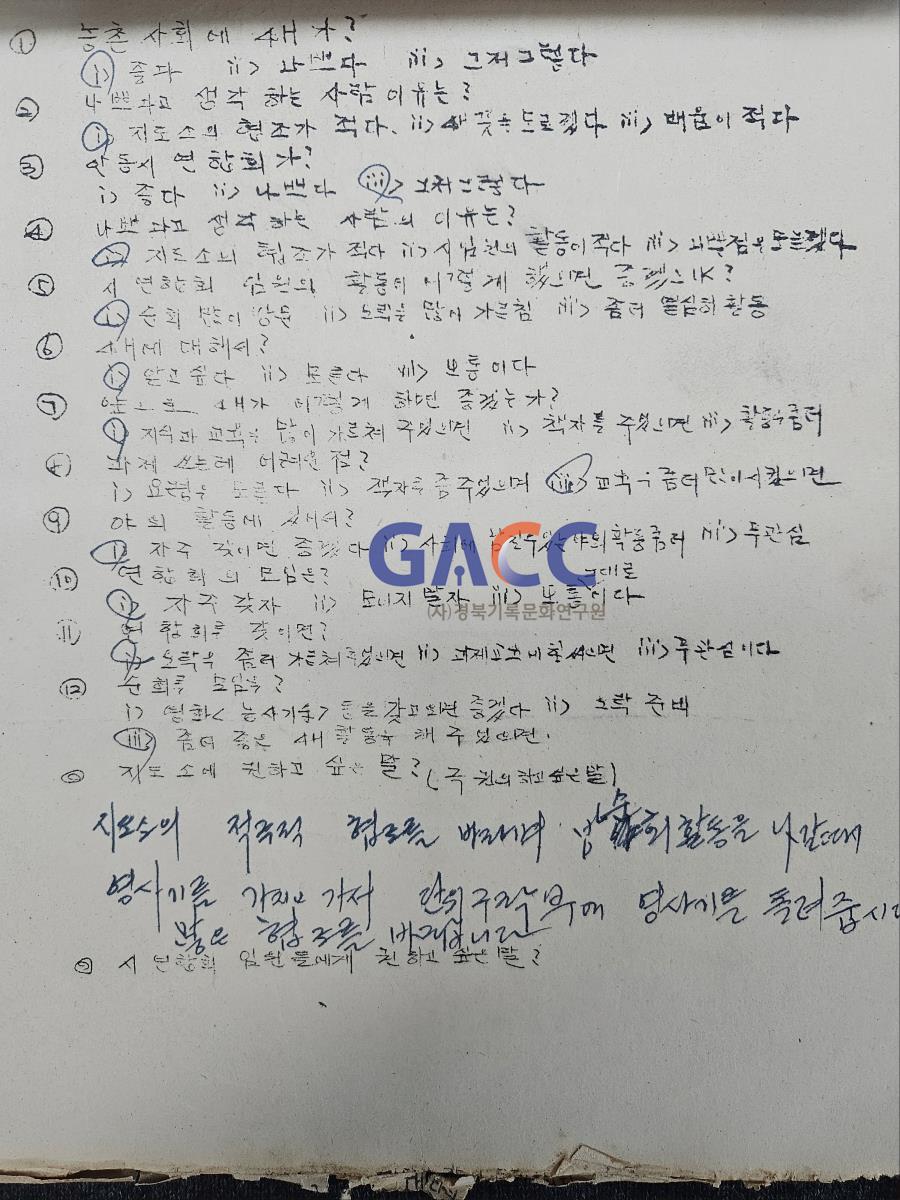 ① 농촌 사회에 4H 가?
i> 좋다 ii> 나쁘다 iii> 그저그렇다
② 나쁘다고 생각 하는 사람 이유는?
i> 지도소의 협조가 적다. ii> 4H 꽃을 모르겠다 iii> 배움이 적다
③ 안동시 연합회가?
i> 좋다 ii> 나쁘다 iii> 그저그렇다
④ 나쁘다고 생각 하는 사람의 이유는?
i> 지도소의 협조가 적다 ii> 시임원의 활동이적다 iii> 나쁜점을모르겠다
⑤ 시 연합회 임원의 활동이 어떻게 했으면 좋겠으K?
i> 순회 많이 방문 ii> 오락을 많이 가르침 iii> 좀더 열심히 활동
⑥ 4H에 대해서?
i> 알고 싶다 ii> 모른다 iii> 보통이다
⑦ 앞으로 4H가 어떻게 하면 좋겠는가?
i> 지식과 교육을 많이 가르쳐 주었으면 ii> 책자를 주었으면 iii> 활동좀더
⑧ 과제 쓰는데 어려운점?
i> 요령을 모른다 ii> 책자를좀주었으면 iii> 교육을 좀더많이시켰으면
⑨ 야외 활동에 있어서?
i> 자주 갖이면 좋겠다 ii> 사회에 야외활동좀더 iii> 무관심
⑩ 연합회의 모임은? 그대로
i> 자주 갖자 ii> 모이지 말자 iii> 보통이다
⑪ 연합회를 갖이면?
i> 오락을 좀더 가르쳐주었으면 ii> iii> 무관심이다
⑫ 순회를 모임을?
i> 영화<농사기술>등을갖고오면 좋겠다 ii> 오락 준비
iii> 좀더 좋은 4H 활동을 해 주었으면.
◎ 지도소에 권하고 싶은 말? (꼭 권의하고싶은말)
지도소의 적극적 협조를 바라며 순회활동을 나갈때
영사기를 가지고 가서 단위구락부에 영사기를 돌려줍시다
많은 협조를 바라겠읍니다
◎ 시 연합회 임원들에게 권하고 싶은말?
GACC
(사)경북기록문화연구원